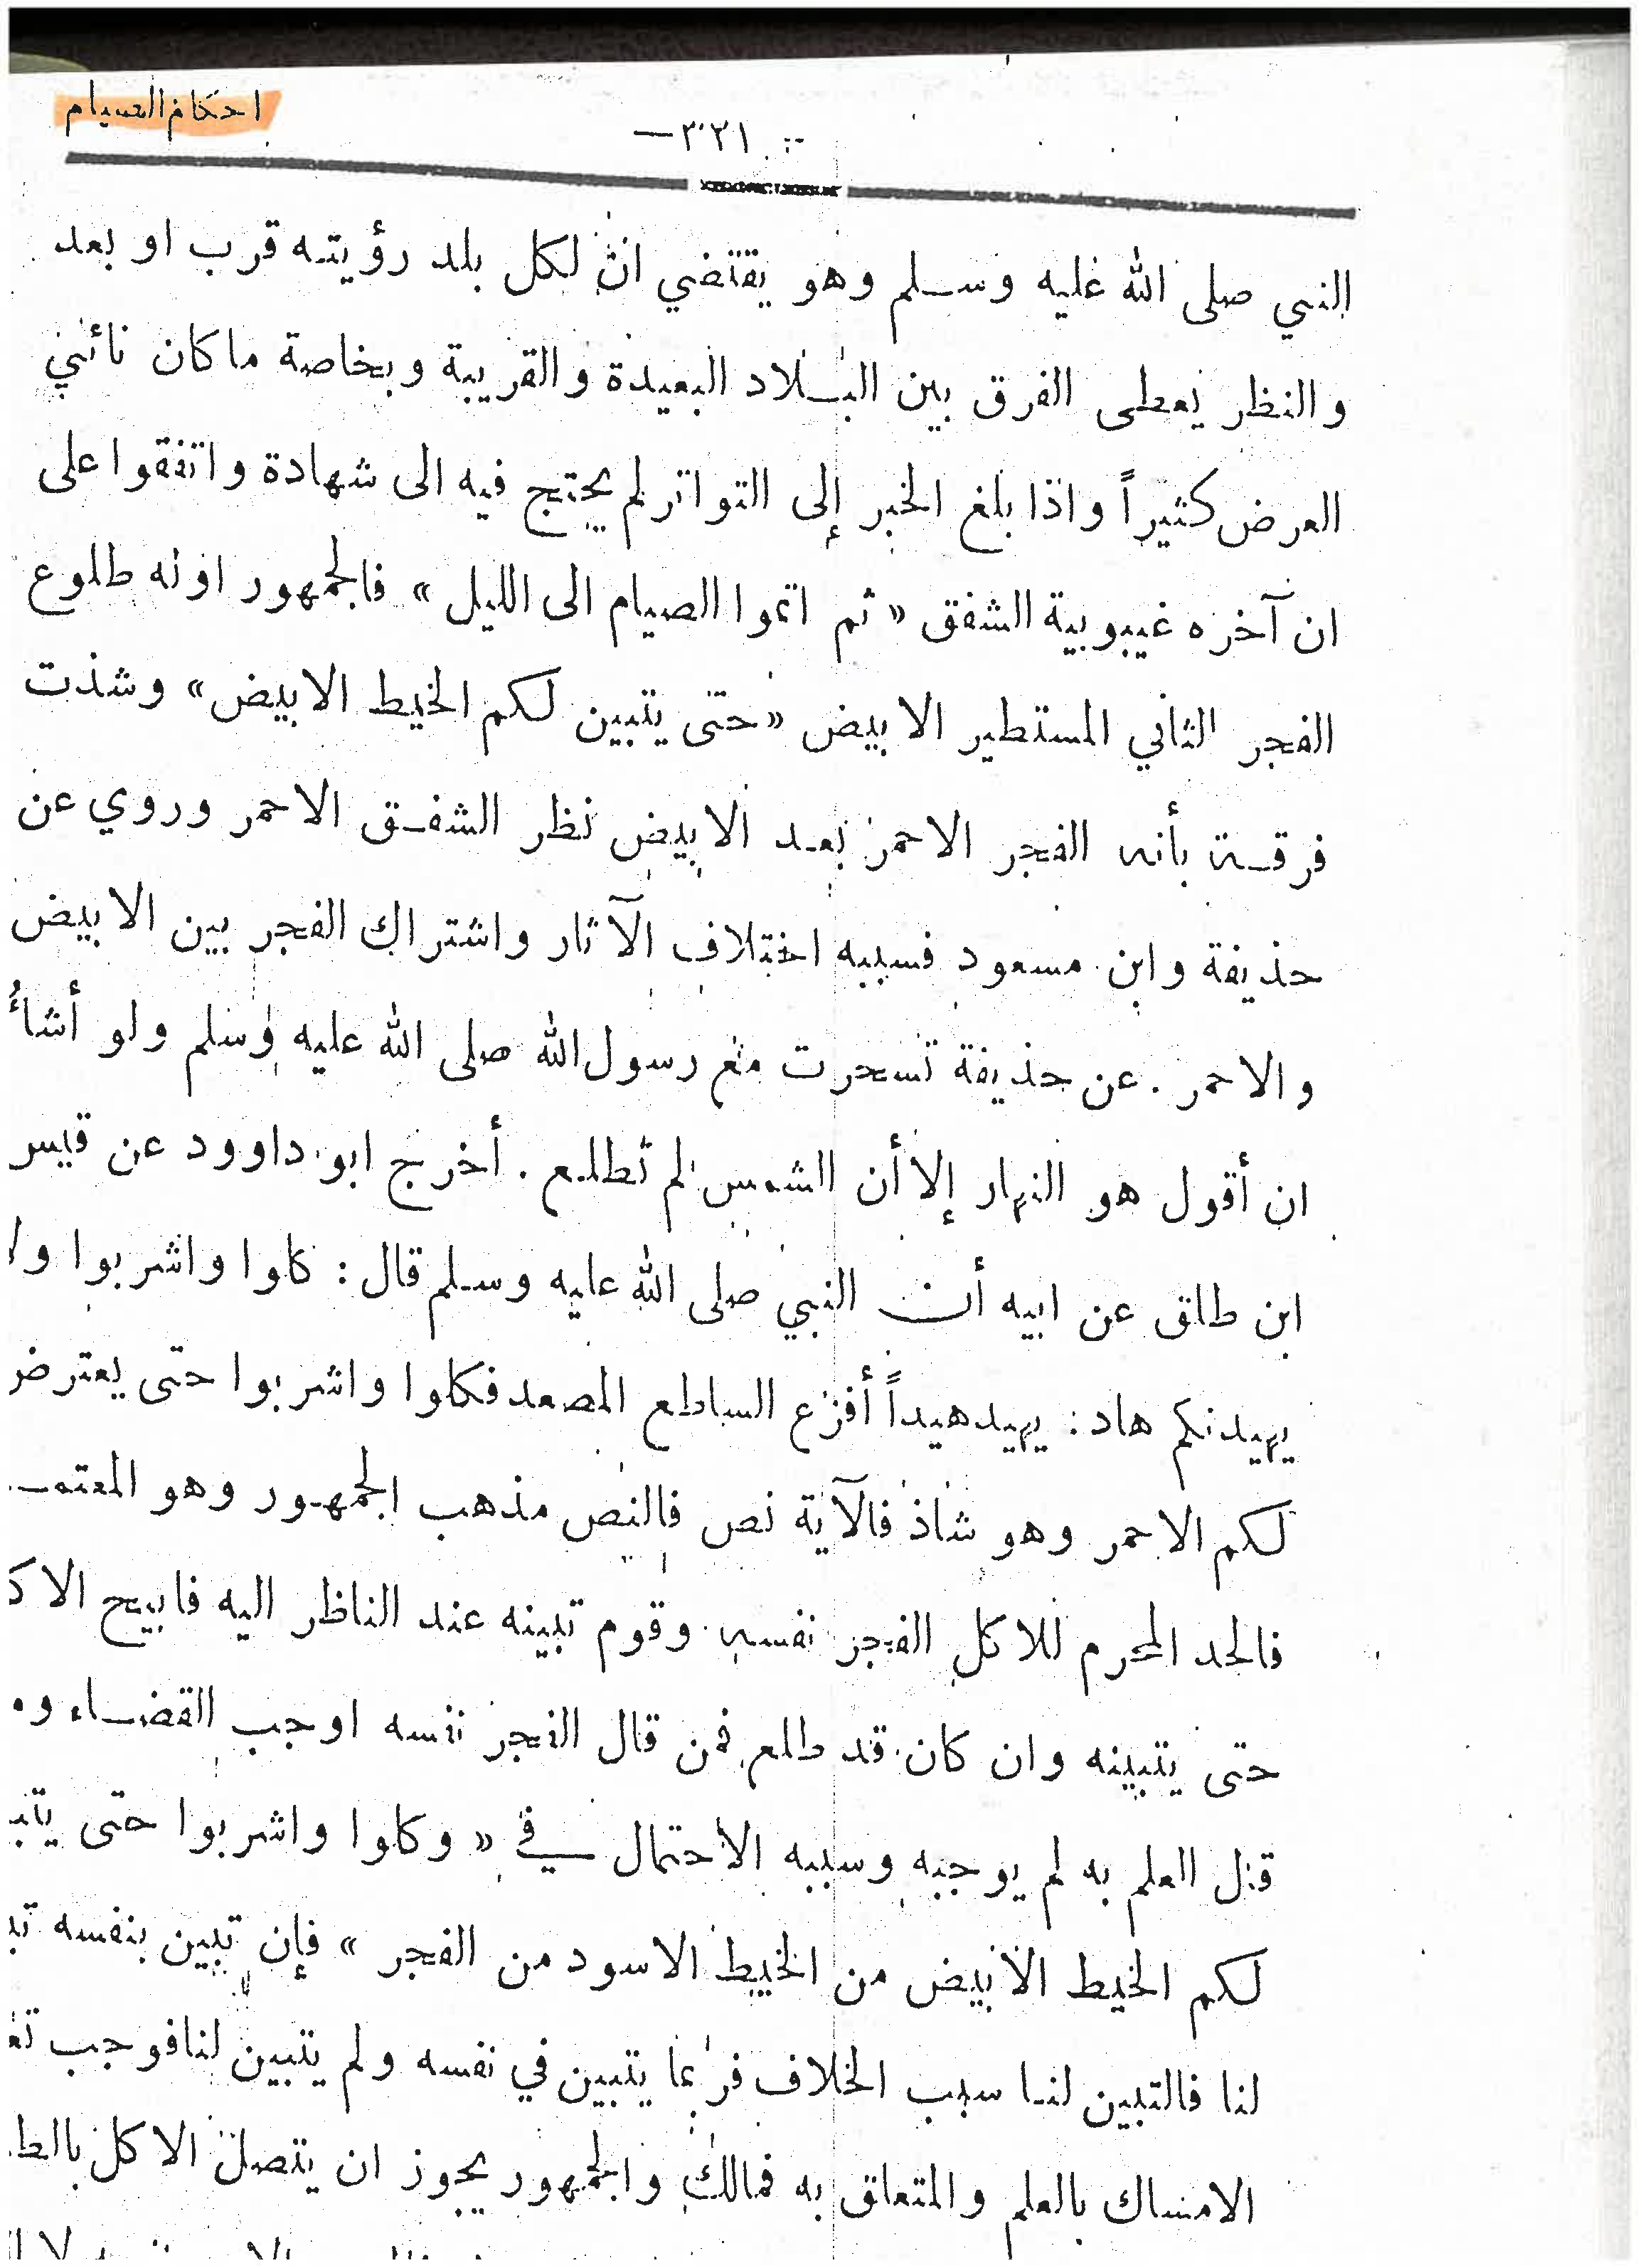 احكام الصيام
— ٣٢١ —
النبي صلى الله عليه وسلم وهو يقتضي ان لكل بلد رؤيته قرب او بعد
والنظر يعطى الفرق بين البلاد البعيدة والقريبة وبخاصة ما كان نائي
العرض كثيراً واذا بلغ الخبر إلى التواتر لم يحتج فيه الى شهادة واتفقوا على
ان آخره غيبوبية الشفق « ثم اتموا الصيام الى الليل » فالجمهور اوله طلوع
الفجر الثاني المستطير الابيض « حتى يتبين لكم الخيط الابيض » وشذت
فرقة بأنه الفجر الاحمر بعد الابيض نظر الشفق الاحمر وروي عن
حذيفة وابن مسعود فسببه اختلاف الآثار واشتراك الفجر بين الابيض
والاحمر . عن حذيفة تسحرت مع رسول الله صلى الله عليه وسلم ولو أشأُ
ان أقول هو النهار إلا أن الشمس لم تطلع . أخرج ابو داوود عن قيس
ابن طلق عن ابيه أن النبي صلى الله عليه وسلم قال : كلوا واشربوا ولا
يهيدنكم هاد : يهيد هيداً أفزع الساطع المصعد فكلوا واشربوا حتى يعترض
لكم الاحمر وهو شاذ فالآية نص فالنص مذهب الجمهور وهو المعتمـ
فالحد المحرم للاكل الفجر نفسه وقوم تبينه عند الناظر اليه فابيح الاكـ
حتى يتبينه وان كان قد طلع فمن قال الفجر نفسه اوجب القضاء و
قال العلم به لم يوجبه وسببه الاحتمال في « وكلوا واشربوا حتى يتبـ
لكم الخيط الأبيض من الخيط الاسود من الفجر » فإن تبين بنفسه تبـ
لنا فالتبين لنا سبب الخلاف فربما يتبين في نفسه ولم يتبين لنا فوجب تعـ
الامساك بالعلم والمتعلق به فمالك والجمهور يجوز ان يتصل الاكل بالطـ